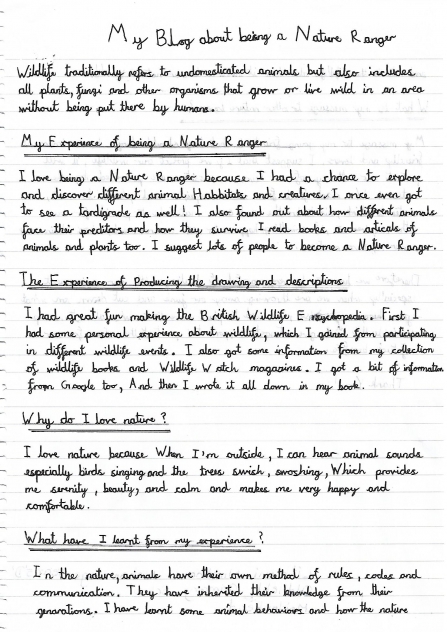 My Blog about being a Nature Ranger
Wildlife traditionally refers to undomesticated animals but also includes
all plants, fungi and other organisms that grow or live wild in an area
without being put there by humans.
My Experience of being a Nature Ranger
I love being a Nature Ranger because I had a chance to explore
and discover different animal Habbitats and creatures. I once even got
to see a tardigrade as well! I also found out about how different animals
face their preditors and how they survive I read books and articals of
animals and plants too. I suggest lots of people to become a Nature Ranger.
The Experience of Producing the drawing and descriptions
I had great fun making the British Wildlife Encyclopedia. First I
had some personal experience about wildlife, which I gained from participating
in different wildlife events. I also got some information from my collection
of wildlife books and Wildlife Watch magazines. I got a bit of information
from Google too, And then I wrote it all down in my book.
Why do I love nature?
I love nature because When I'm outside, I can hear animal sounds
especially birds singing and the trees swish, swoshing, Which provides
me serenity, beauty, and calm and makes me very happy and
comfortable.
What have I learnt from my experience?
In the nature, animals have their own method of rules, codes and
communication. They have inherited their knowledge from their
genarations. I have learnt some animal behaviors and how the nature